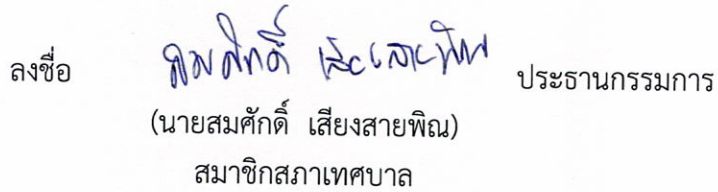 ลงชื่อ สมศักดิ์ เสียงสายพิณ ประธานกรรมการ
(นายสมศักดิ์ เสียงสายพิณ)
สมาชิกสภาเทศบาล